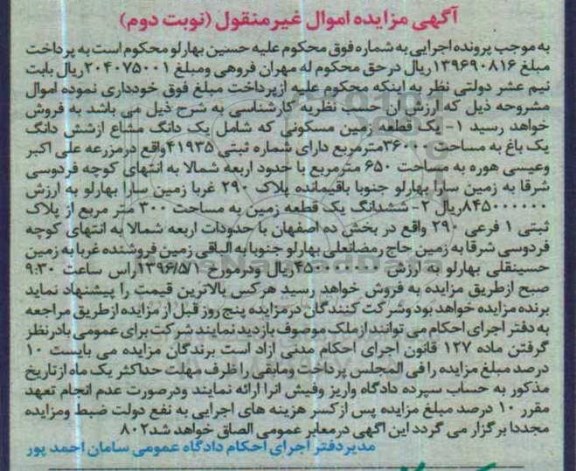 آگهی مزایده اموال غیرمنقول (نوبت دوم)
به موجب پرونده اجرایی به شماره فوق محکوم علیه حسین بهارلو محکوم است به پرداخت
مبلغ ۱۳۹۶۹۰۸۱۶ریال درحق محکوم له مهران فروهی ومبلغ ۲۰۴۰۷۵۰۰۱ریال بابت
نیم عشر دولتی نظر به اینکه محکوم علیه ازپرداخت مبلغ فوق خودداری نموده اموال
مشروحه ذیل که ارزش آن حسب نظریه کارشناسی به شرح ذیل می باشد به فروش
خواهد رسید ۱- یک قطعه زمین مسکونی که شامل یک دانگ مشاع ازشش دانگ
یک باغ به مساحت ۳۶۰۰مترمربع دارای شماره ثبتی ۴۱۹۳۵واقع درمزرعه علی اکبر
وعیسی هوره به مساحت ۶۵۰ مترمربع با حدود اربعه شمالا به انتهای کوچه فردوسی
شرقا به زمین سارا بهارلو جنوبا باقیمانده پلاک ۲۹۰ غربا زمین سارا بهارلو به ارزش
۸۴۵۰۰۰۰۰۰ریال ۲- ششدانگ یک قطعه زمین به مساحت ۳۰۰ متر مربع از پلاک
ثبتی ۱ فرعی ۲۹۰ واقع در بخش ده اصفهان با حدودات اربعه شمالا به انتهای کوچه
فردوسی شرقا به زمین حاج رمضانعلی بهارلو جنوبا به الباقی زمین فروشنده غربا به زمین
حسینقلی بهارلو به ارزش ۴۵۰۰۰۰۰۰۰ریال ودرمورخ ۱۳۹۶/۵/۱راس ساعت ۹:۳۰
صبح ازطریق مزایده به فروش خواهد رسید هرکس بالاترین قیمت را پیشنهاد نماید
برنده مزایده خواهد بود وشرکت کنندگان درمزایده پنج روز قبل از مزایده ازطریق مراجعه
به دفتر اجرای احکام می توانند ازملک موصوف بازدید نمایند شرکت برای عمومی بادرنظر
گرفتن ماده ۱۲۷ قانون اجرای احکام مدنی ازاد است برندگان مزایده می بایست ۱۰
درصد مبلغ مزایده را فی المجلس پرداخت ومابقی را ظرف مهلت حداکثر یک ماه ازتاریخ
مذکور به حساب سپرده دادگاه واریز وفیش انرا ارائه نمایند ودرصورت عدم انجام تعهد
مقرر ۱۰ درصد مبلغ مزایده پس ازکسر هزینه های اجرایی به نفع دولت ضبط ومزایده
مجددا برگزار می گردد این آگهی درمعابر عمومی الصاق خواهد شد۸۰۲
مدیردفتر اجرای احکام دادگاه عمومی سامان احمد پور